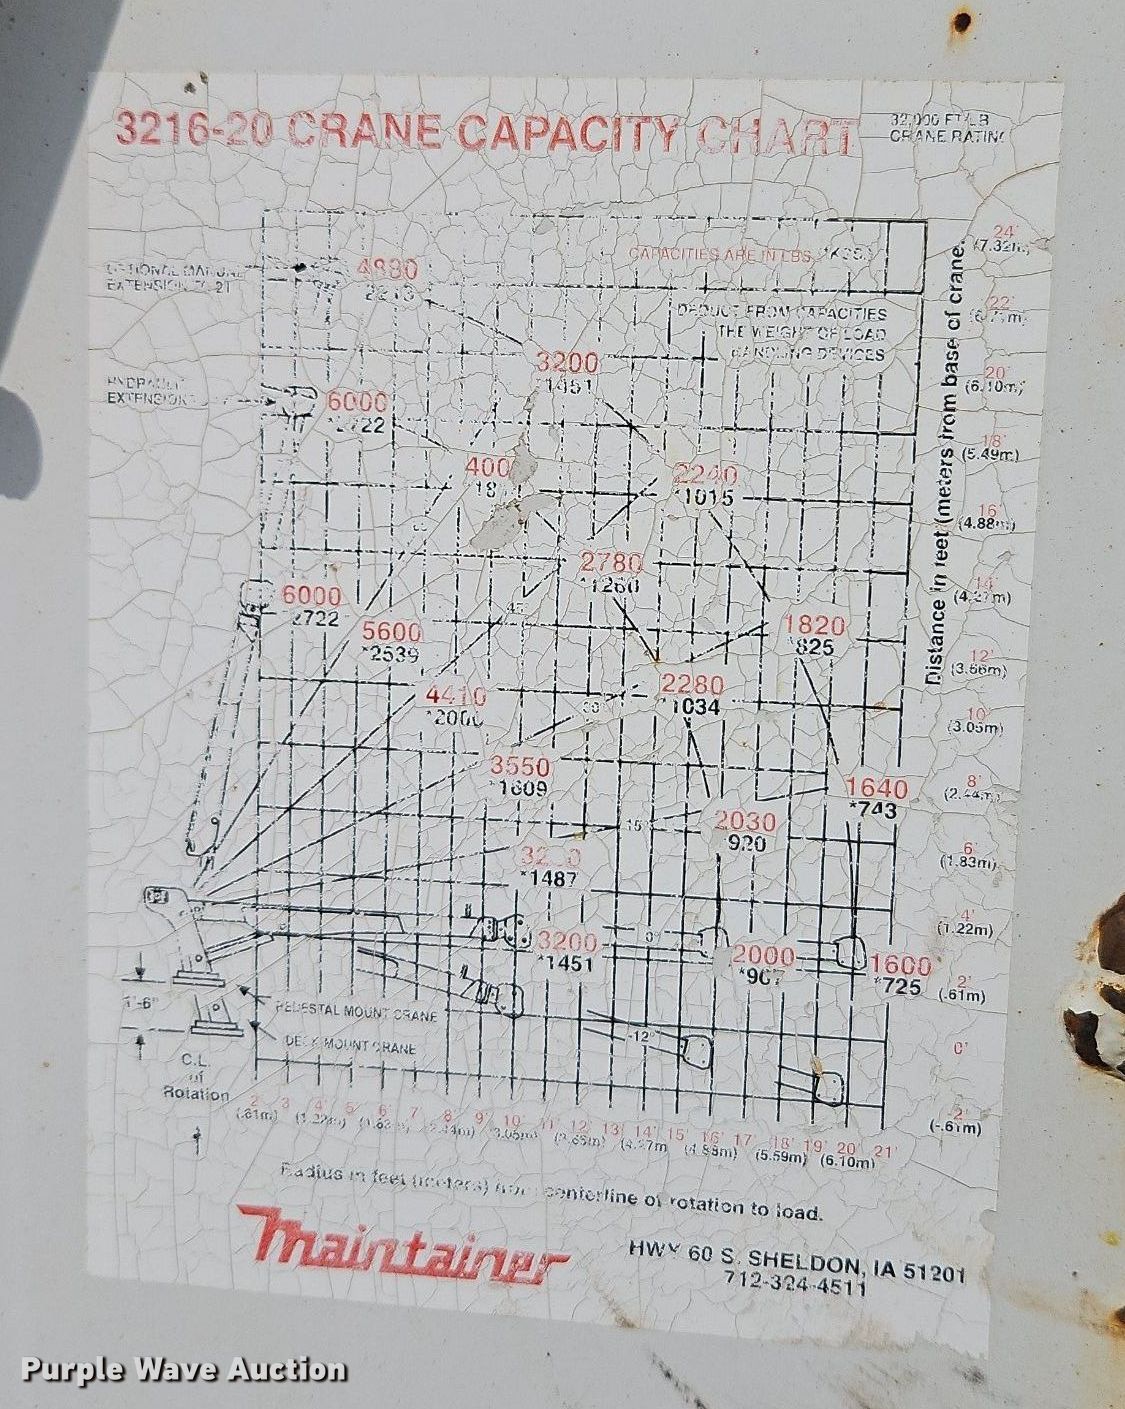 3216-20 CRANE CAPACITY CHART
32,000 FT/LB
CRANE RATING
CAPACITIES ARE IN LBS.
DEDUCT FROM CAPACITIES
THE WEIGHT OF LOAD
HANDLING DEVICES
OPTIONAL MANUAL
EXTENSION TO 21'
HYDRAULIC
EXTENSION
3200
*1451
6000
*2722
400
2240
*1015
2780
*1260
6000
2722
5600
*2539
1820
*825
4410
2280
*1034
3550
*1609
1640
*743
2030
920
*1487
3200
*1451
2000
*907
1600
*725
45°
30°
15
0°
-12°
24'
(7.32m)
22'
20'
(6.10m)
18'
(5.49m)
16'
(4.88m)
14'
(4.27m)
12'
(3.66m)
10'
(3.05m)
8'
(2.44m)
6'
(1.83m)
4'
(1.22m)
2'
(.61m)
0'
-2'
(-.61m)
Distance in feet (meters from base of crane.
1'-6"
PEDESTAL MOUNT CRANE
DECK MOUNT CRANE
C.L.
of
Rotation
2' 3 4' 5' 6' 7' 8' 9' 10' 11' 12' 13' 14' 15' 16' 17' 18' 19' 20' 21'
(.61m) (1.22m) (1.83m) (2.44m) (3.05m) (3.66m) (4.27m (4.88m) (5.59m) (6.10m)
Radius in feet (meters) from centerline of rotation to load.
Maintainer
HWY 60 S. SHELDON, IA 51201
712-324-4511
Purple Wave Auction